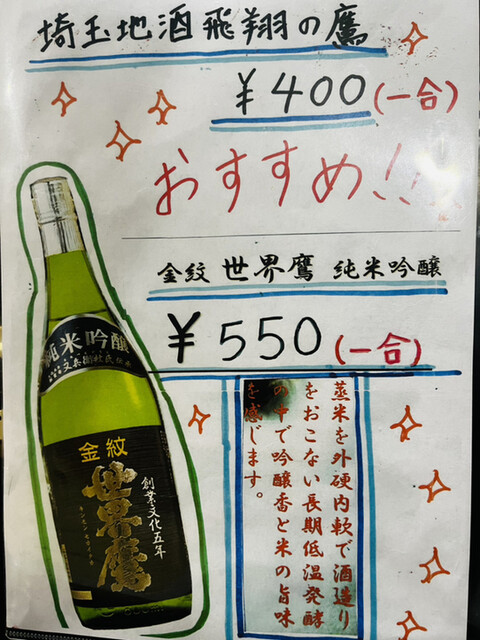 埼玉地酒飛翔の鷹
¥400(一合)
おすすめ!!
金紋 世界鷹 純米吟醸
¥550(一合)
蒸米を外硬内軟で酒造り
をおこない長期低温発酵
の中で吟醸香と米の旨味
を感じます。
純米吟醸
金紋
世界鷹
創業文化五年